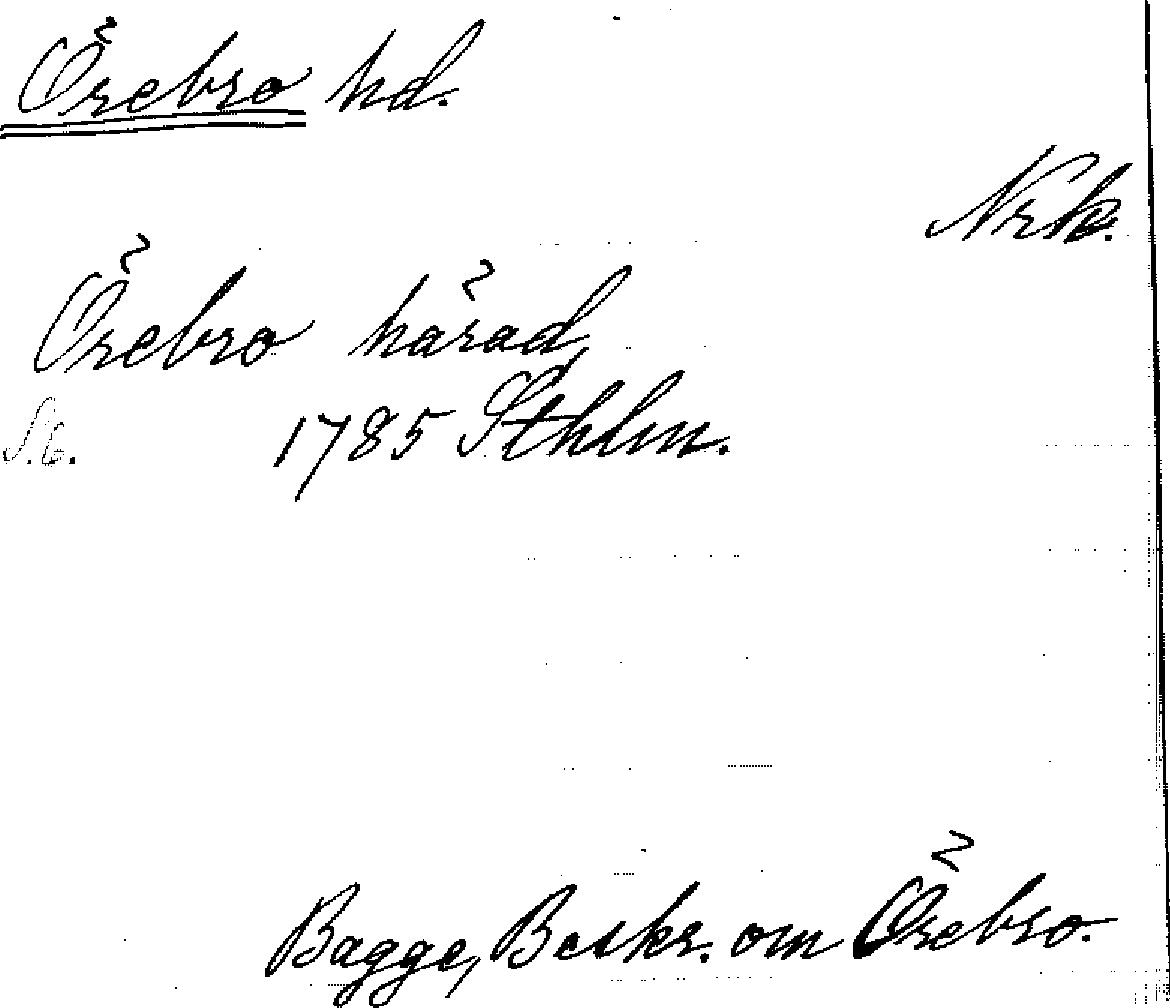 Örebro hd.
Nrk.
Örebro härad
S. 6. 1785 Sthlm.
Bagge, Beskr. om Örebro.